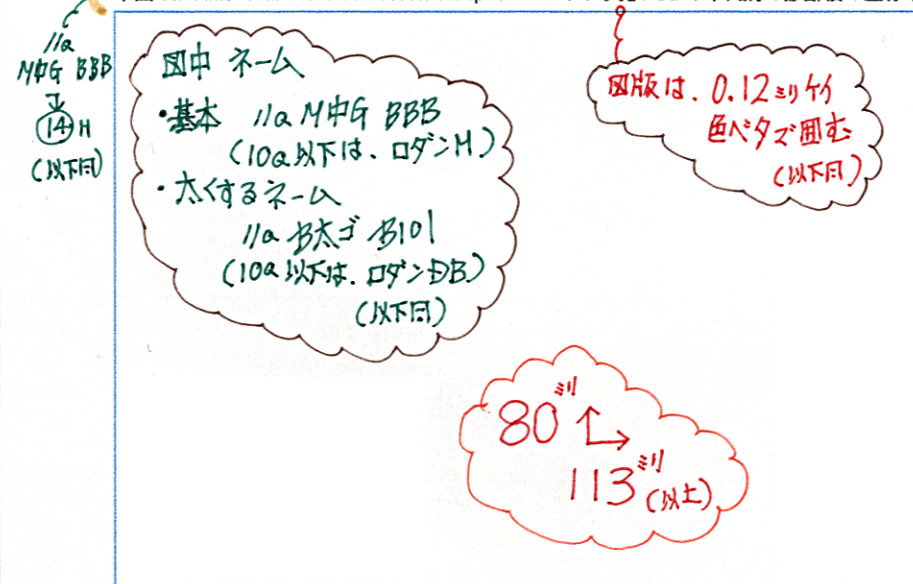 11Q
M中G BBB
⑭H
(以下同)
図中 ネーム
・基本 11Q M中G BBB
(10Q以下は、ロダンM)
・太くするネーム
11Q B太ゴ B101
(10Q以下は、ロダンDB)
(以下同)
図版は、0.12ミリケイ
色ベタで囲む
(以下同)
80ミリ
113ミリ(以上)